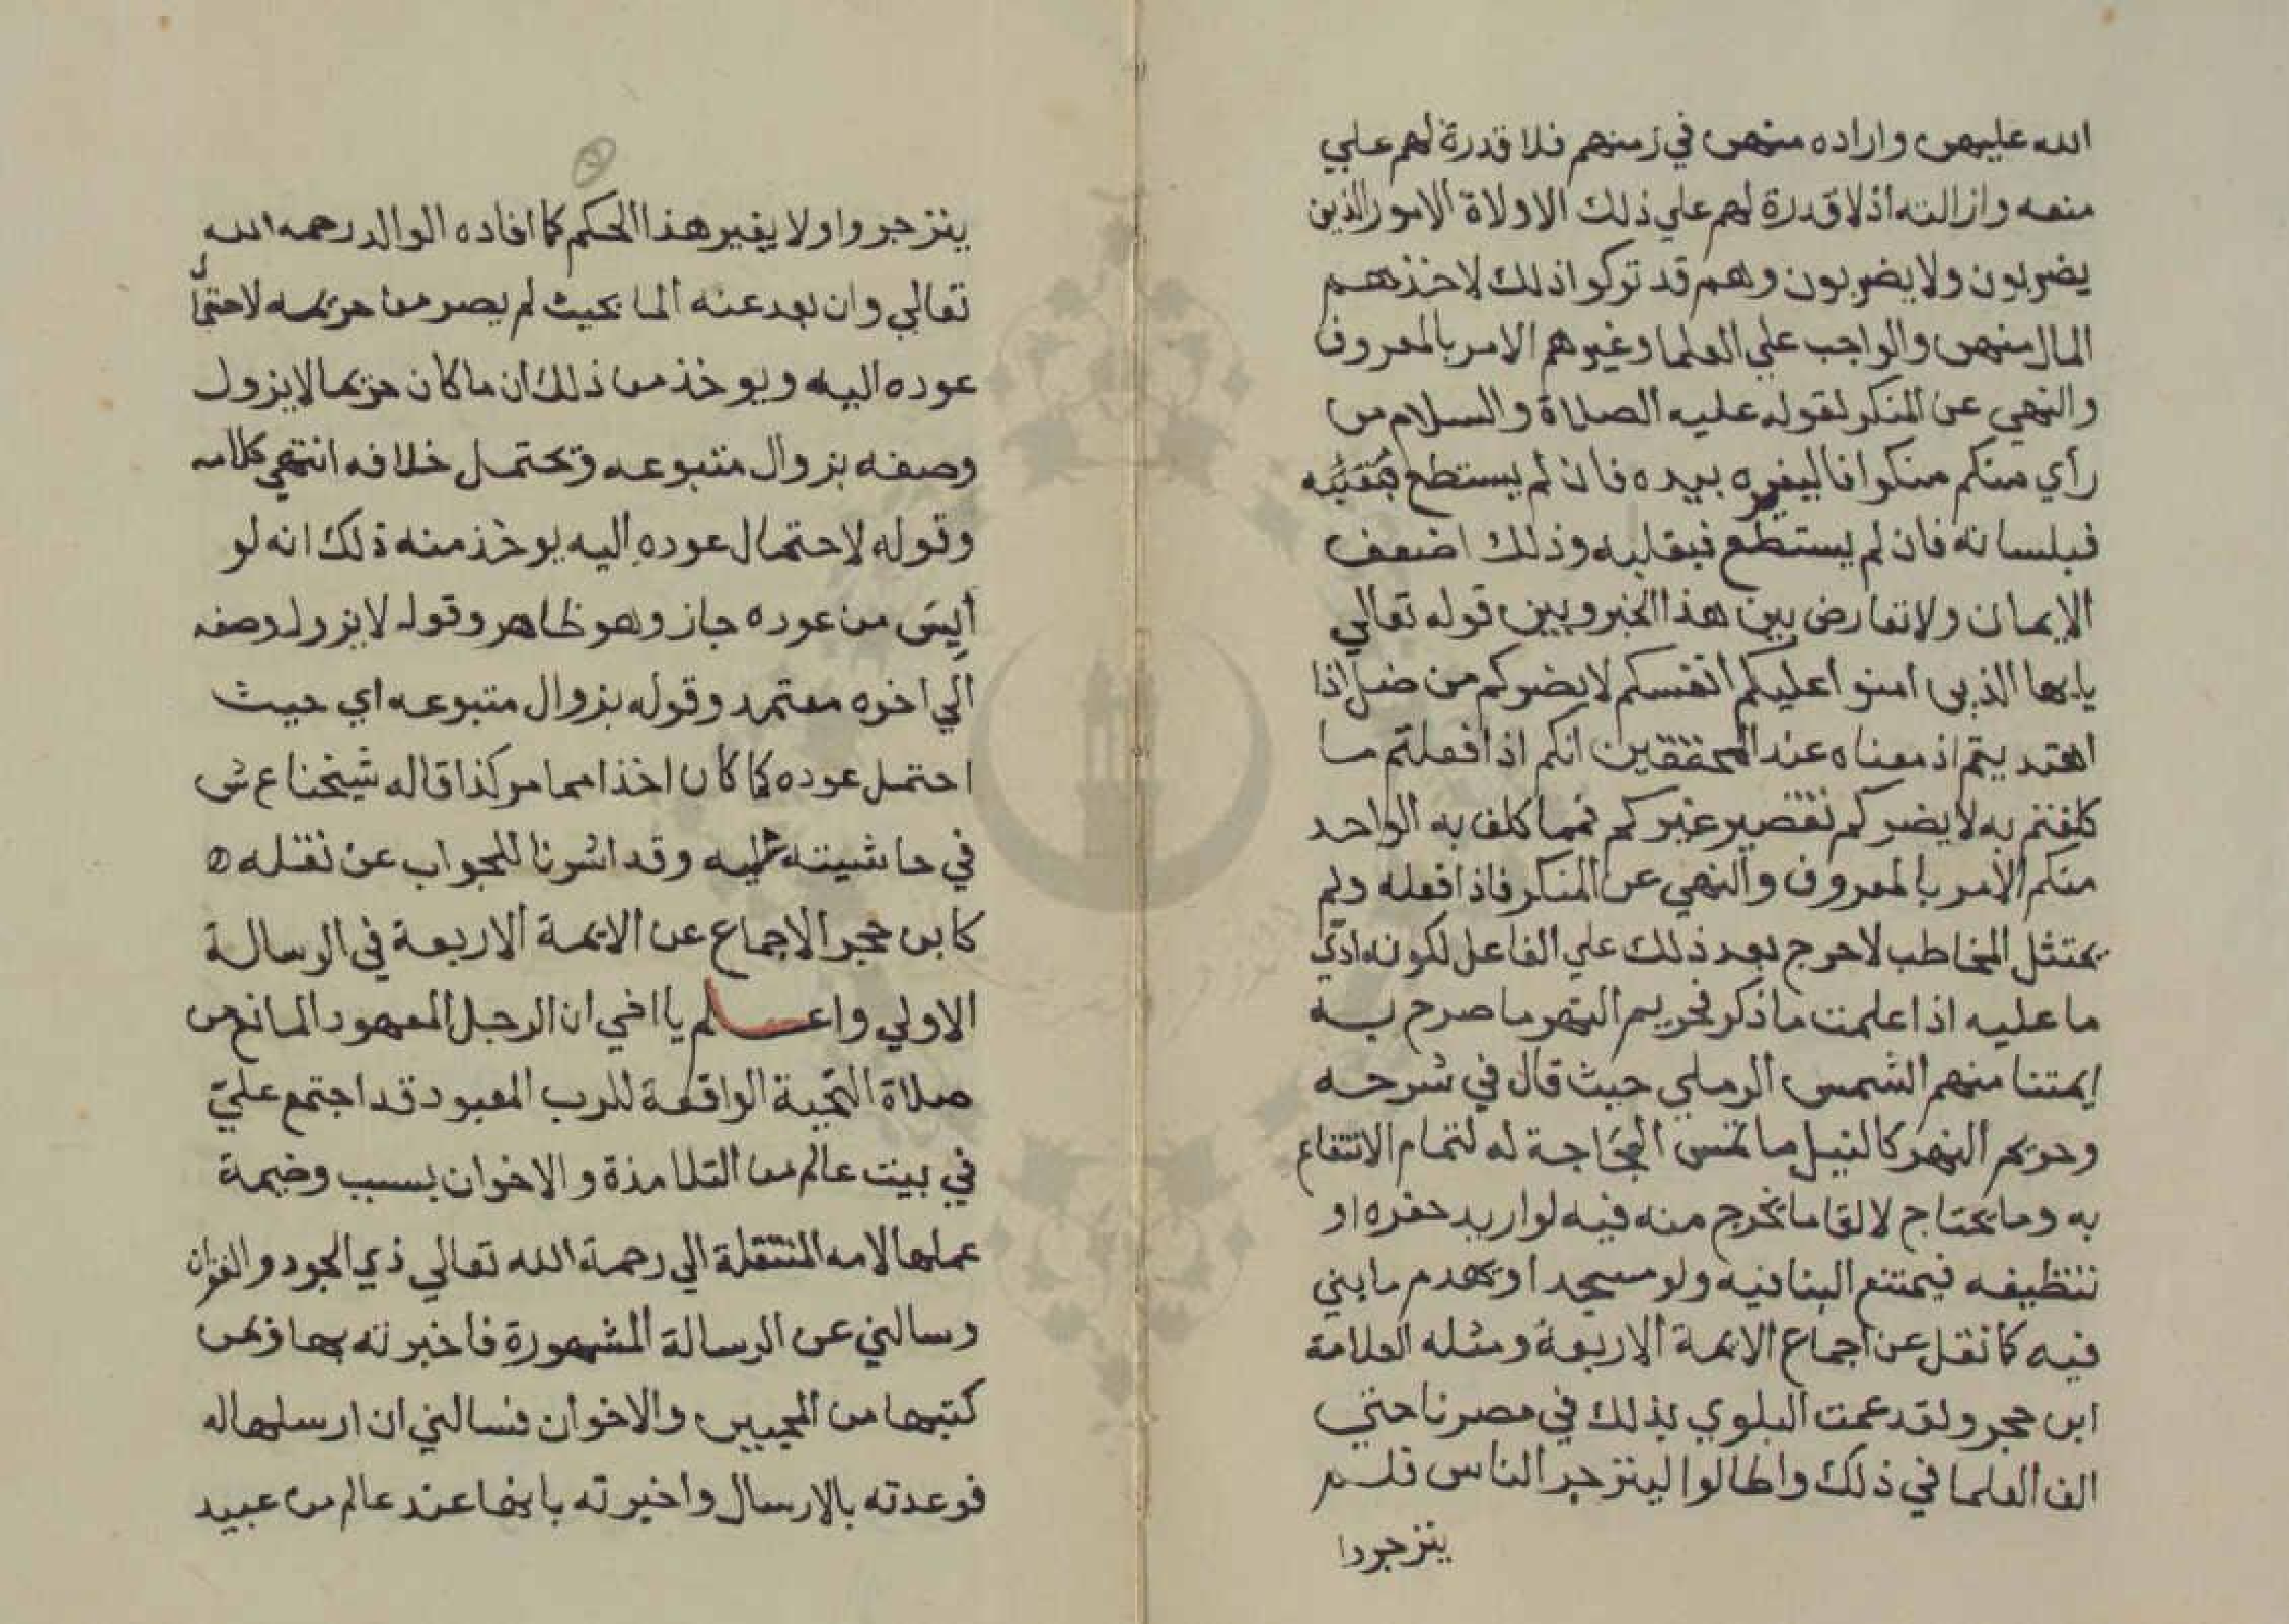 الله عليهن واراده منهن في زمنهم فلا قدرة لهم علي
منعه وازالته اذ لا قدرة لهم علي ذلك الا ولاة الامور الذين
يضربون ولا يضربون وهم قد تركوا ذلك لاخذهم
المال منهن والواجب علي العلما وغيرهم الامر بالمعروف
والنهي عن المنكر لقوله عليه الصلاة والسلام من
رأي منكم منكرا فاليغيره بيده فان لم يستطع
فبلسانه فان لم يستطع فبقلبه وذلك اضعف
الايمان ولا تعارض بين هذا الخبر وبين قوله تعالي
يايها الذين امنوا عليكم انفسكم لا يضركم من ضل اذا
اهتديتم اذ معناه عند المحققين انكم اذا فعلتم ما
كلفتم به لا يضركم تقصير غيركم فمما كلف به الواحد
منكم الامر بالمعروف والنهي عن المنكر فاذا فعله ولم
يمتثل المخاطب لا حرج بعد ذلك علي الفاعل لكونه ادّي
ما عليه اذا علمت ما ذكر فحريم النهر ما صرح به
ايمتنا منهم الشمس الرملي حيث قال في شرحه
وحريم النهر كالنيل ما تمس الحاجة له لتمام الانتفاع
به وما يحتاج لالقا ما يخرج منه فيه لو اريد حفره او
تنظيفه فيمتنع البنا فيه ولو مسجدا ويهدم ما بني
فيه كما نقل عن اجماع الايمة الاربعة ومثله العلامة
ابن حجر ولقد عمت البلوي بذلك في مصرنا حتي
الف العلما في ذلك واطالوا لينزجر الناس فلم
ينزجروا
ينزجروا ولا يغير هذا الحكم كما افاده الوالد رحمه الله
تعالي وان بعد عنه الما بحيث لم يصر من حريمه لاحتمال
عوده اليه ويوخذ من ذلك ان ما كان حريما لا يزول
وصفه بزوال متبوعه وتحتمل خلافه انتهي كلامه
وقوله لاحتمال عوده اليه يوخذ منه ذلك انه لو
أيس من عوده جاز وهو ظاهر وقوله لا يزول وصفه
الي اخره معتمد وقوله بزوال متبوعه اي حيث
احتمل عوده كما كان اخذا مما مر كذا قاله شيخنا ع ش
في حاشيته عليه وقد اشرنا للجواب عن نقله ه
كابن حجر الاجماع عن الايمة الاربعة في الرسالة
الاولي واعلم يا اخي ان الرجل المعهود المانع من
صلاة التحية الواقعة للرب المعبود قد اجتمع عليّ
في بيت عالم من التلامذة والاخوان بسبب وضيمة
عملها لامه المنتقلة الي رحمة الله تعالي ذي الجود والغفران
وسالني عن الرسالة المشهورة فاخبرته بها وبمن
كتبها من المحبين والاخوان فسالني ان ارسلها له
فوعدته بالارسال واخبرته بانها عند عالم من عبيد